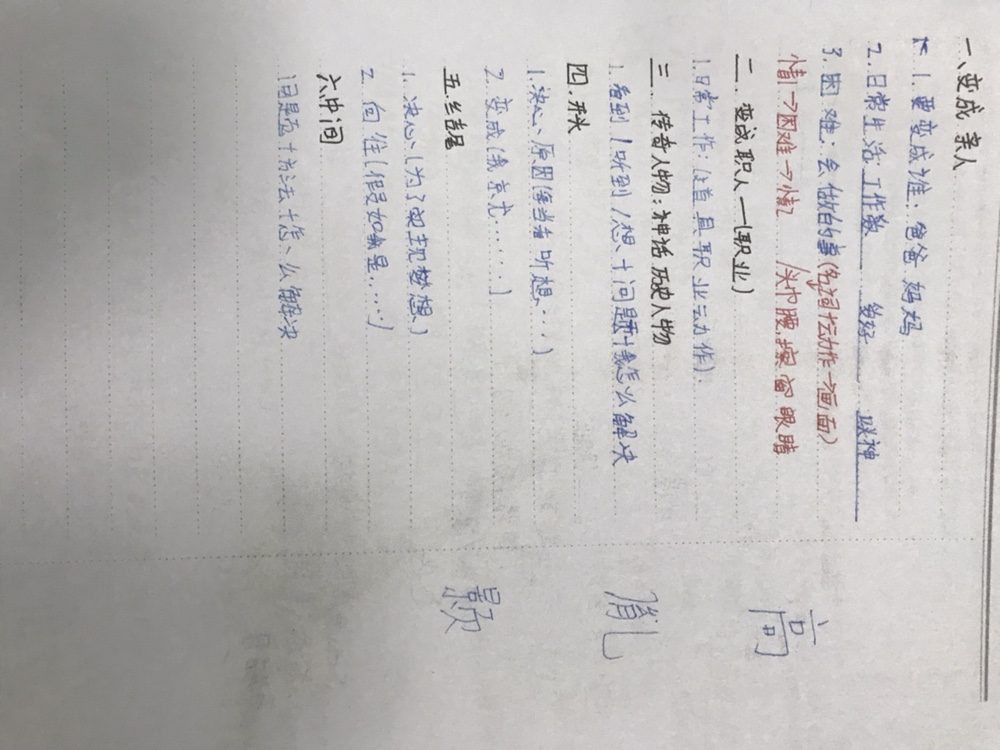 一、变成亲人
1. 要变成谁：爸爸 妈妈
2. 日常生活：工作数 爱好 眼神
3. 困难：会做的事(名词+动作→画面)
情→困难→情 头巾腰,嘴窗眼睛
二 变成职人—(职业)
1.日常工作：(道具职业动作)
三 传奇人物：神话 历史人物
1.看到/听到/想+问题+我怎么解决
四 开头
1.决心、原因(每当看听想…)
2. 变成(我亲尤.....)
五 结尾
1. 决心、(为了实现梦想、)
2. 向往(假如我是.....)
六、中间
问题+方法+怎么解决
高
胤
颢